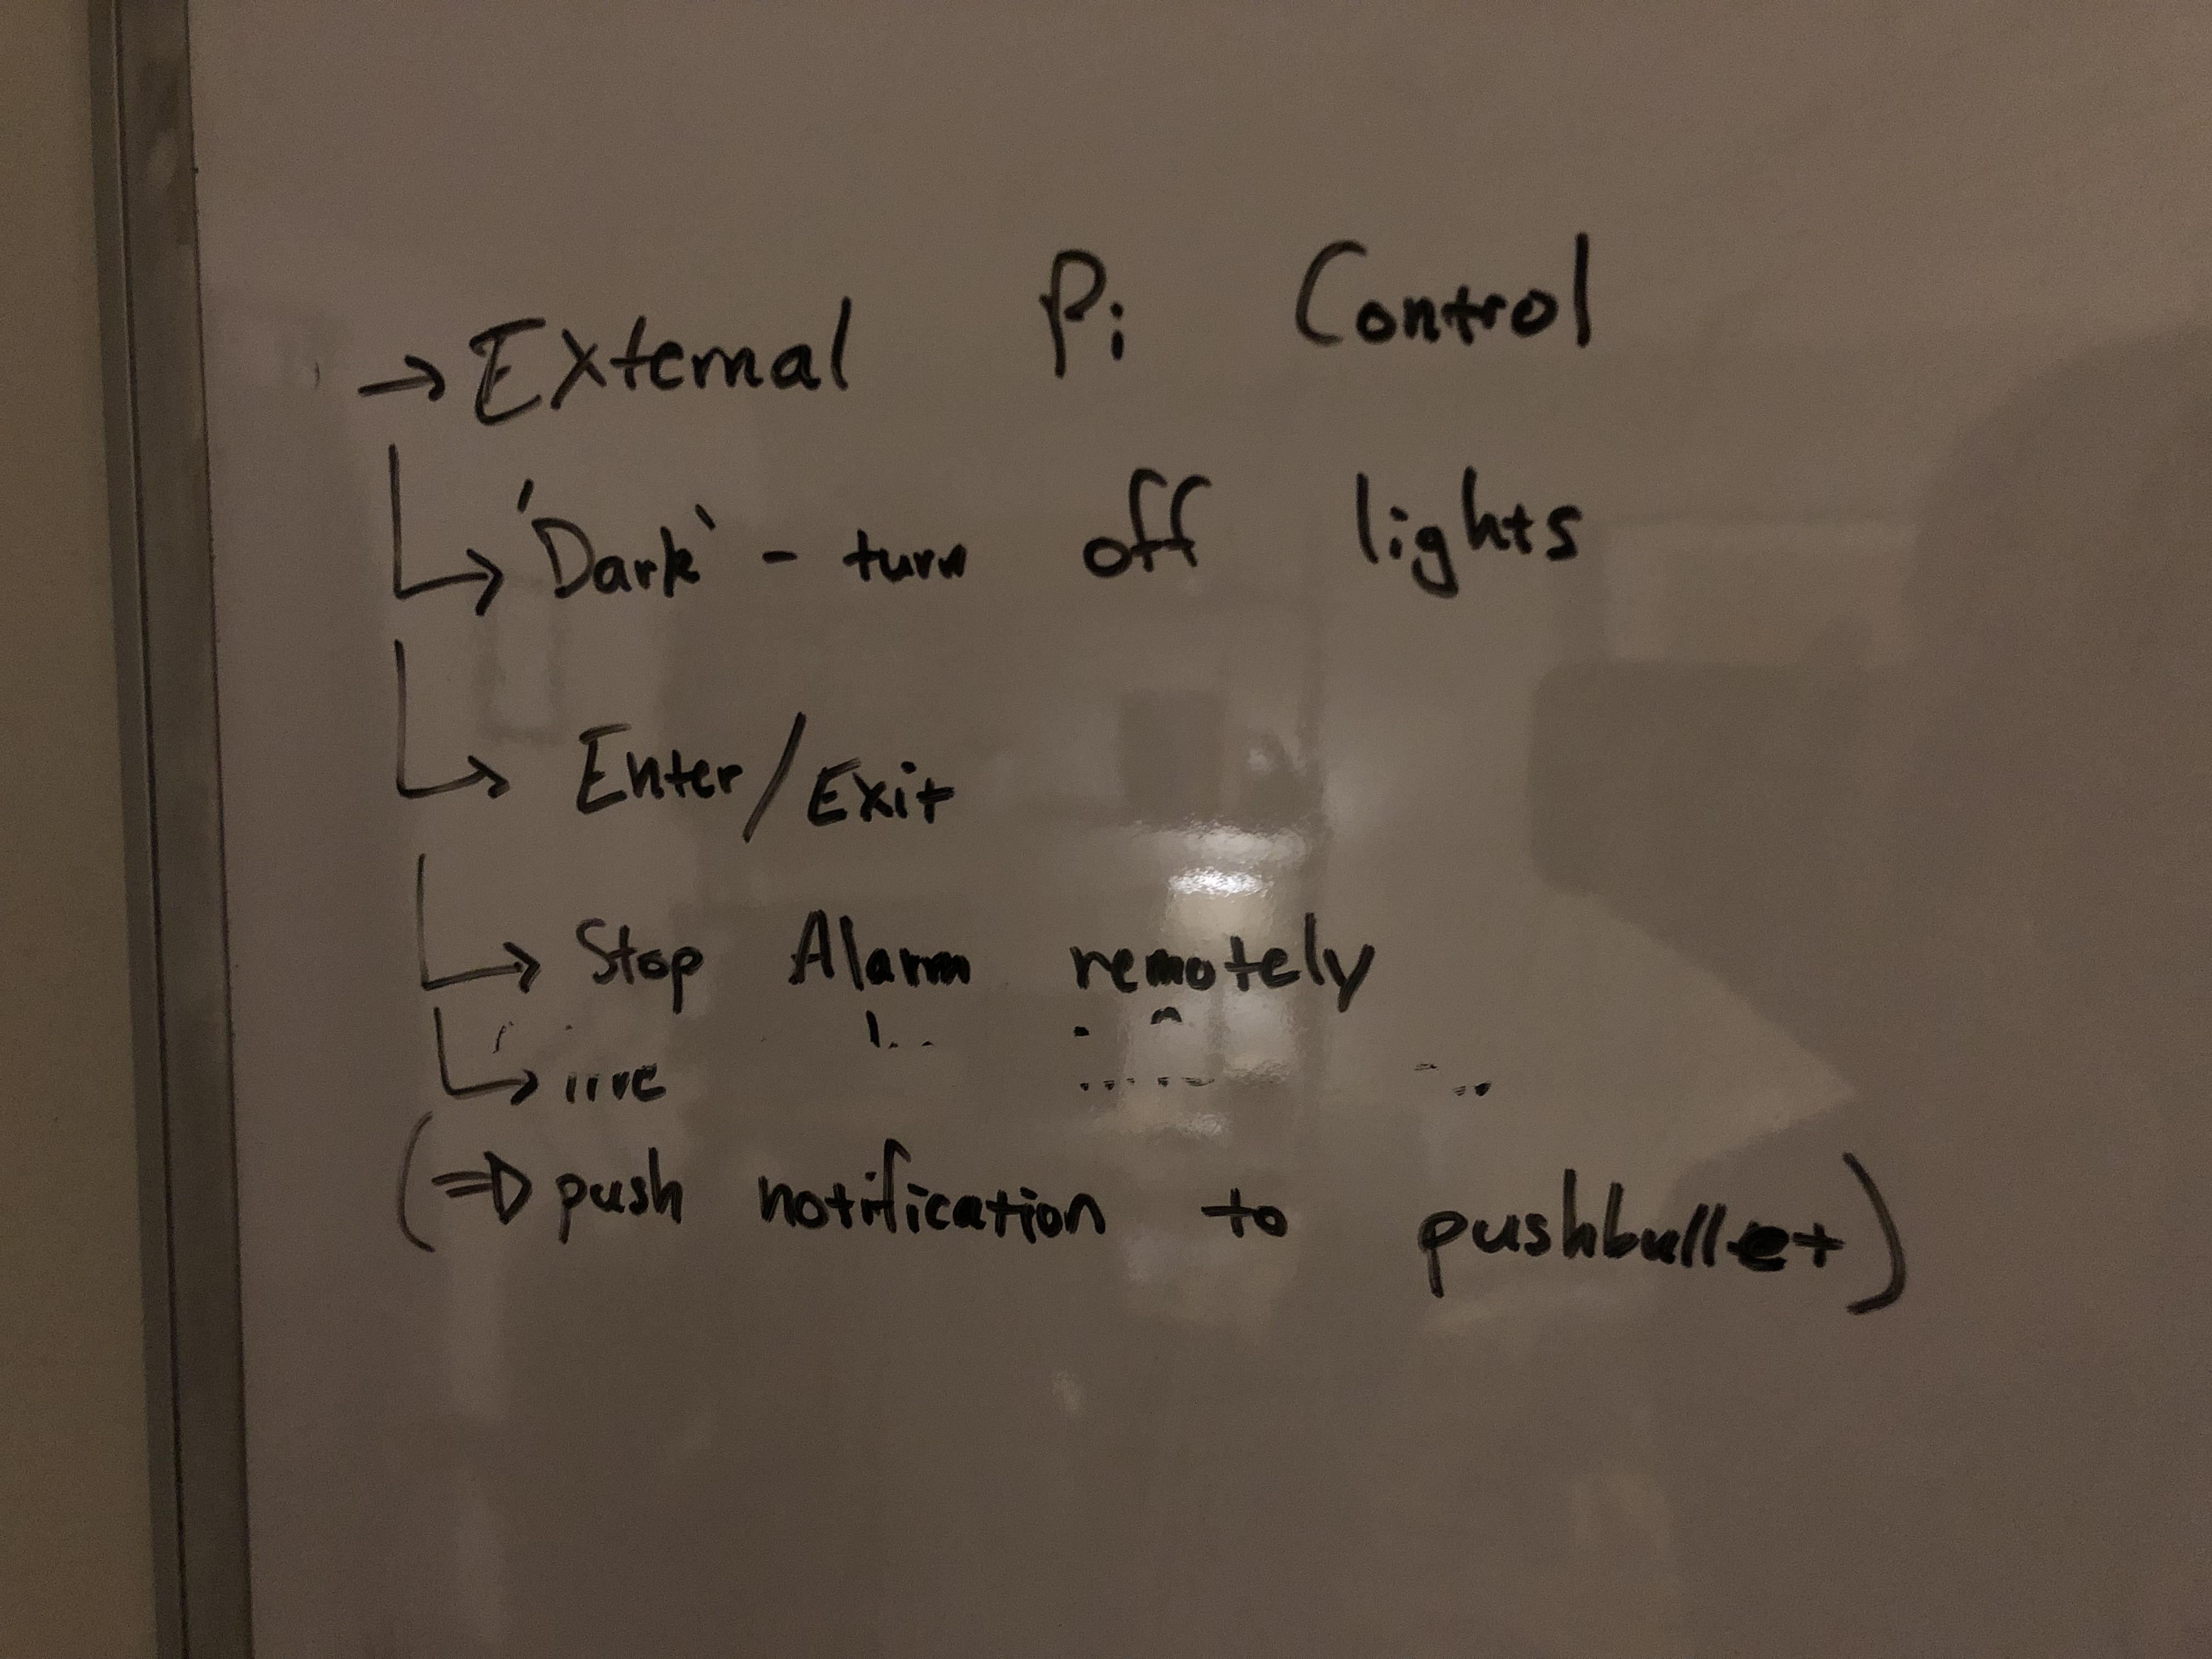 → External Pi Control
↳ 'Dark' - turn off lights
↳ Enter/Exit
↳ Stop Alarm remotely
↳
(⇒ push notification to pushbullet)